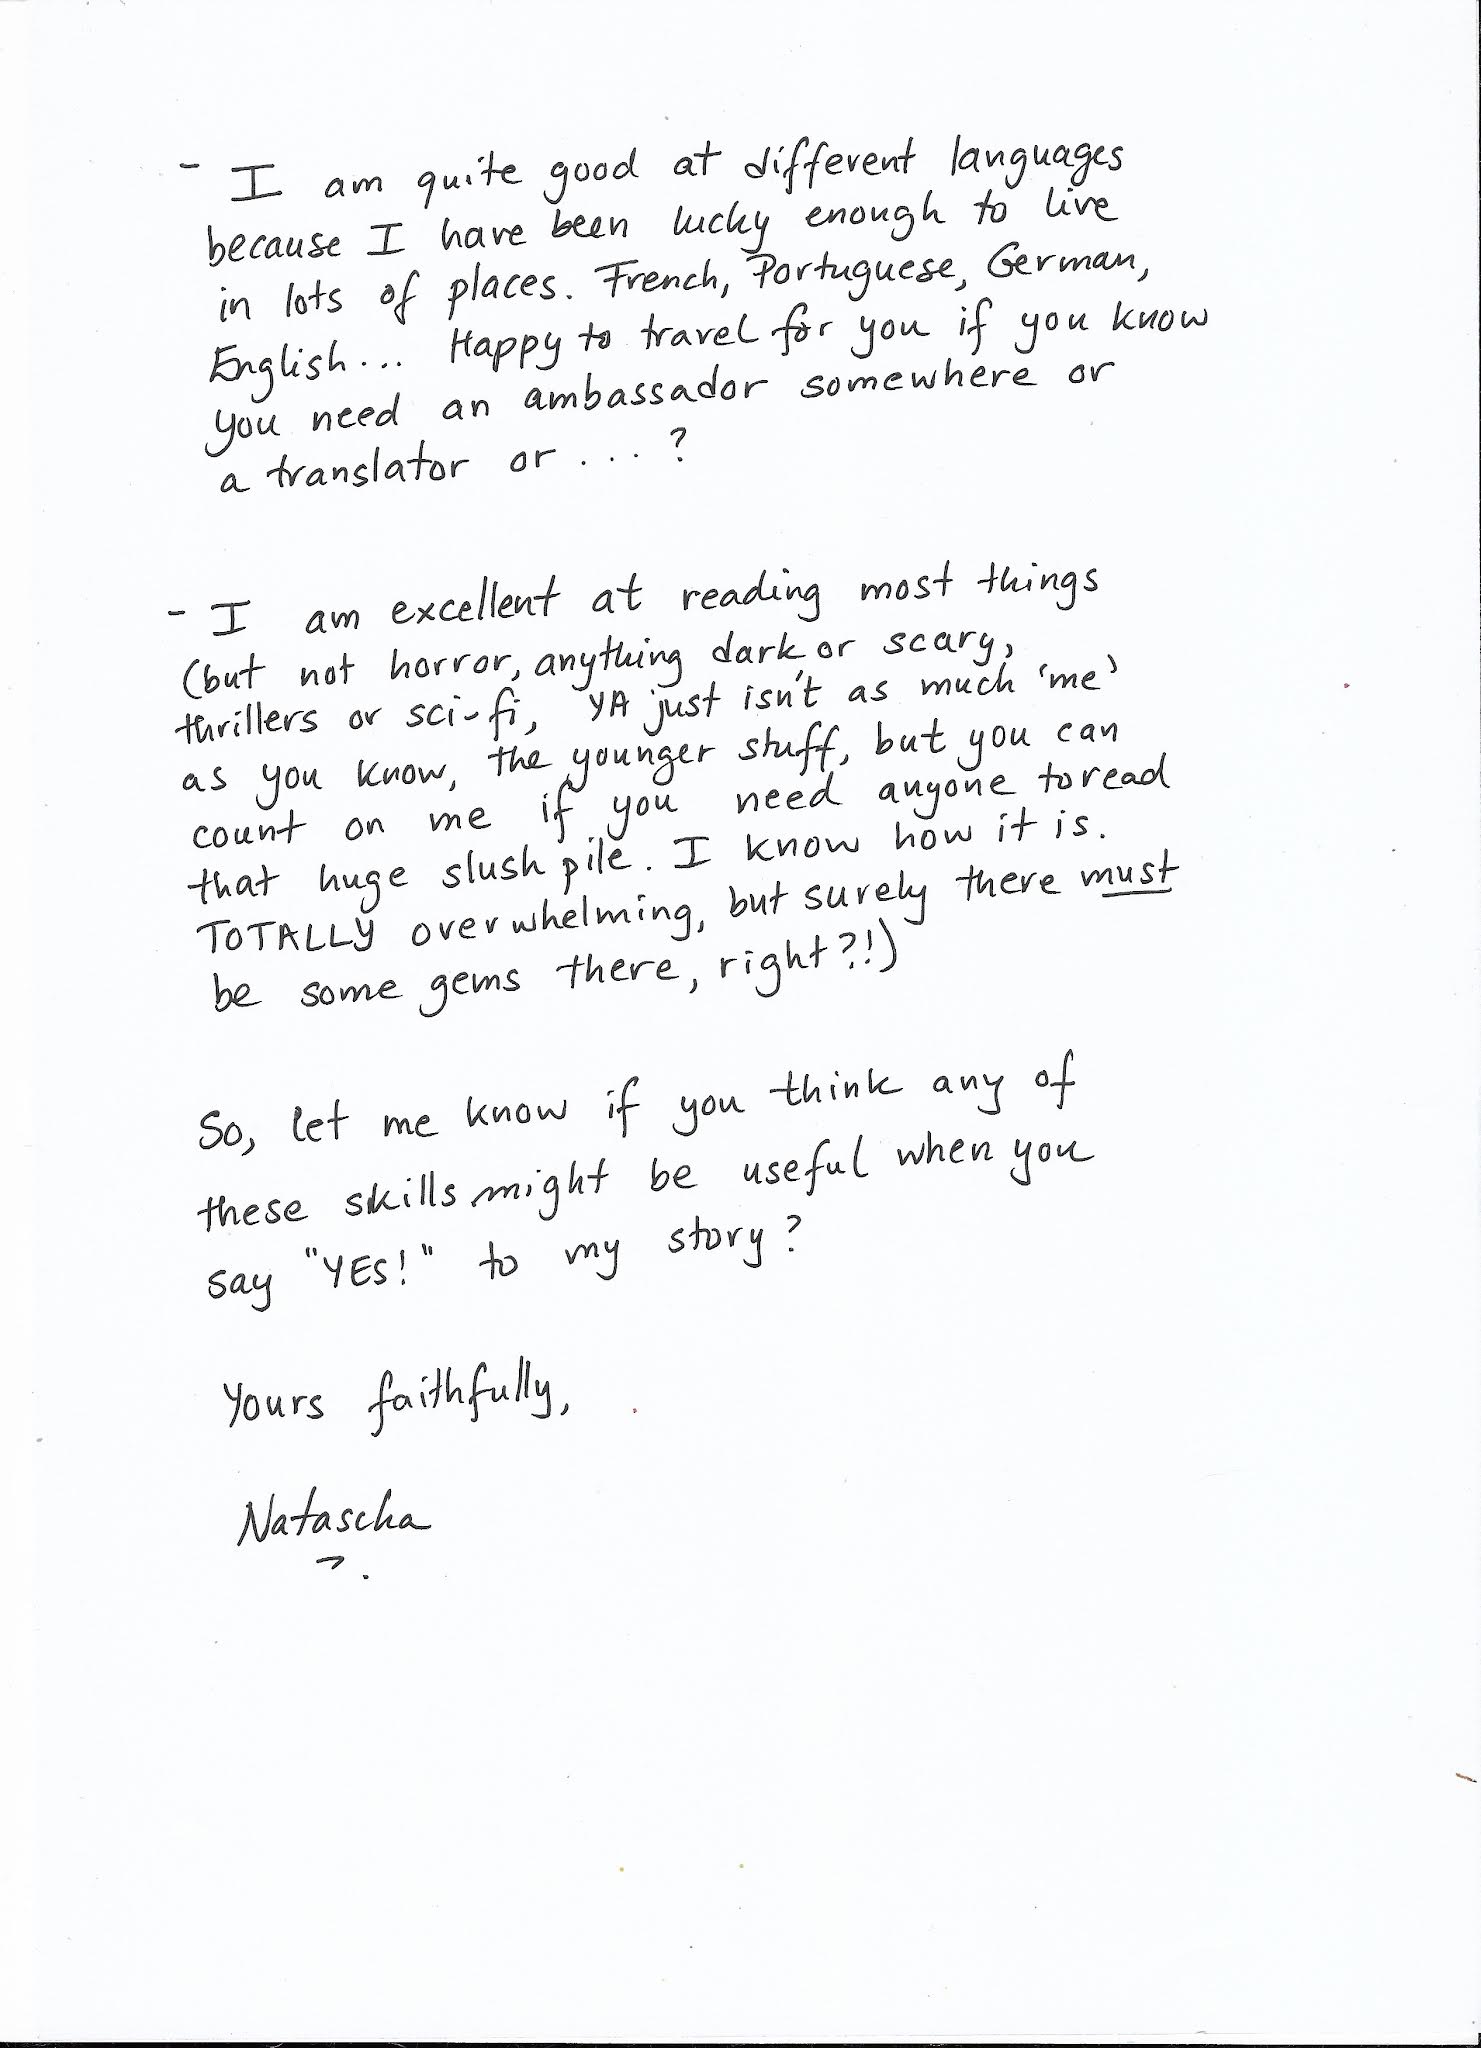 - I am quite good at different languages
because I have been lucky enough to live
in lots of places. French, Portuguese, German,
English... Happy to travel for you if you know
you need an ambassador somewhere or
a translator or ...?
- I am excellent at reading most things
(but not horror, anything dark, or scary,
thrillers or sci-fi, YA just isn't as much 'me'
as you know, the younger stuff, but you can
count on me if you need anyone to read
that huge slush pile. I know how it is.
TOTALLY overwhelming, but surely there must
be some gems there, right?!)
So, let me know if you think any of
these skills might be useful when you
say "YES!" to my story?
Yours faithfully,
Natascha